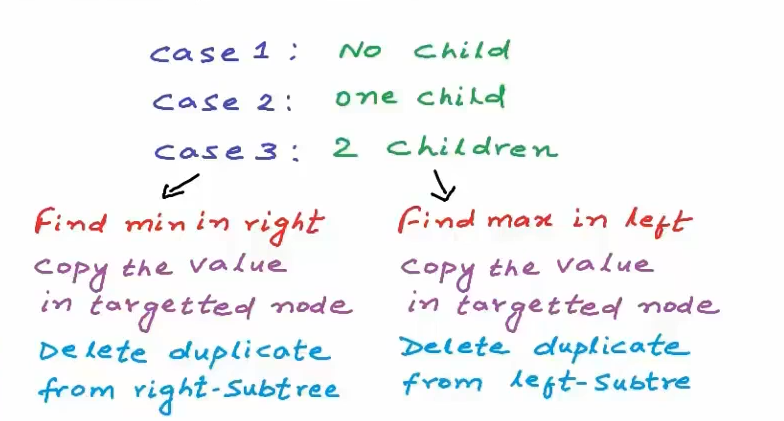 case 1 : No child
case 2 : one child
case 3 : 2 children
Find min in right
Copy the value
in targetted node
Delete duplicate
from right-Subtree
Find max in left
Copy the value
in targetted node
Delete duplicate
from left-Subtre